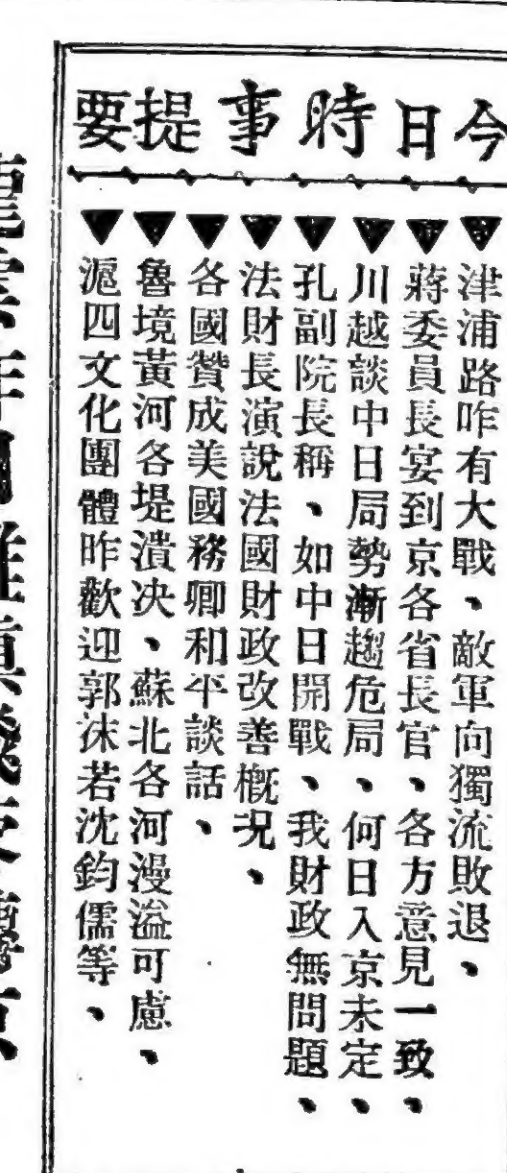 今日時事提要
▼津浦路昨有大戰、敵軍向獨流敗退、
▼蔣委員長宴到京各省長官、各方意見一致、
▼川越談中日局勢漸趨危局、何日入京未定、
▼孔副院長稱、如中日開戰、我財政無問題、
▼法財長演說法國財政改善槪況、
▼各國贊成美國務卿和平談話、
▼魯境黃河各堤潰决、蘇北各河漫溢可慮、
▼滬四文化團體昨歡迎郭沫若沈鈞儒等、